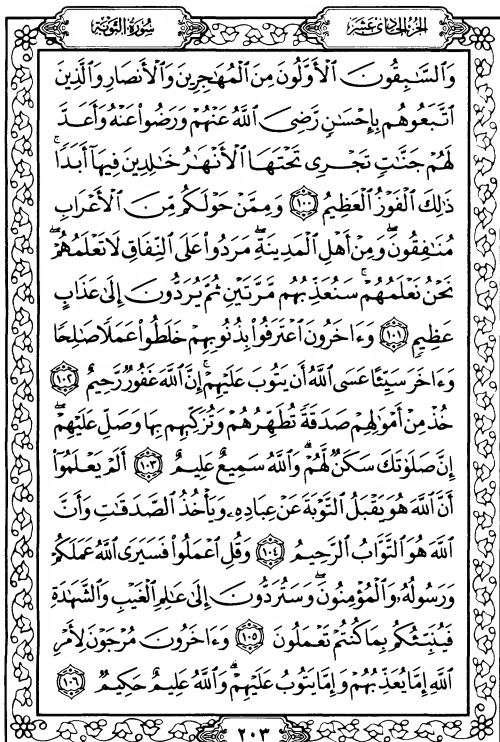 سُورَةُ التَّوۡبَةِ
الجُزۡءُ الحَادِي عَشَرَ
وَٱلسَّٰبِقُونَ ٱلۡأَوَّلُونَ مِنَ ٱلۡمُهَٰجِرِينَ وَٱلۡأَنصَارِ وَٱلَّذِينَ
ٱتَّبَعُوهُم بِإِحۡسَٰنٖ رَّضِيَ ٱللَّهُ عَنۡهُمۡ وَرَضُواْ عَنۡهُ وَأَعَدَّ
لَهُمۡ جَنَّٰتٖ تَجۡرِي تَحۡتَهَا ٱلۡأَنۡهَٰرُ خَٰلِدِينَ فِيهَآ أَبَدٗاۚ
ذَٰلِكَ ٱلۡفَوۡزُ ٱلۡعَظِيمُ ١٠٠ وَمِمَّنۡ حَوۡلَكُم مِّنَ ٱلۡأَعۡرَابِ
مُنَٰفِقُونَۖ وَمِنۡ أَهۡلِ ٱلۡمَدِينَةِ مَرَدُواْ عَلَى ٱلنِّفَاقِ لَا تَعۡلَمُهُمۡۖ
نَحۡنُ نَعۡلَمُهُمۡۚ سَنُعَذِّبُهُم مَّرَّتَيۡنِ ثُمَّ يُرَدُّونَ إِلَىٰ عَذَابٍ
عَظِيمٖ ١٠١ وَءَاخَرُونَ ٱعۡتَرَفُواْ بِذُنُوبِهِمۡ خَلَطُواْ عَمَلٗا صَٰلِحٗا
وَءَاخَرَ سَيِّئًا عَسَى ٱللَّهُ أَن يَتُوبَ عَلَيۡهِمۡۚ إِنَّ ٱللَّهَ غَفُورٞ رَّحِيمٌ ١٠٢
خُذۡ مِنۡ أَمۡوَٰلِهِمۡ صَدَقَةٗ تُطَهِّرُهُمۡ وَتُزَكِّيهِم بِهَا وَصَلِّ عَلَيۡهِمۡۖ
إِنَّ صَلَوٰتَكَ سَكَنٞ لَّهُمۡۗ وَٱللَّهُ سَمِيعٌ عَلِيمٌ ١٠٣ أَلَمۡ يَعۡلَمُوٓاْ
أَنَّ ٱللَّهَ هُوَ يَقۡبَلُ ٱلتَّوۡبَةَ عَنۡ عِبَادِهِۦ وَيَأۡخُذُ ٱلصَّدَقَٰتِ وَأَنَّ
ٱللَّهَ هُوَ ٱلتَّوَّابُ ٱلرَّحِيمُ ١٠٤ وَقُلِ ٱعۡمَلُواْ فَسَيَرَى ٱللَّهُ عَمَلَكُمۡ
وَرَسُولُهُۥ وَٱلۡمُؤۡمِنُونَۖ وَسَتُرَدُّونَ إِلَىٰ عَٰلِمِ ٱلۡغَيۡبِ وَٱلشَّهَٰدَةِ
فَيُنَبِّئُكُم بِمَا كُنتُمۡ تَعۡمَلُونَ ١٠٥ وَءَاخَرُونَ مُرۡجَوۡنَ لِأَمۡرِ
ٱللَّهِ إِمَّا يُعَذِّبُهُمۡ وَإِمَّا يَتُوبُ عَلَيۡهِمۡۗ وَٱللَّهُ عَلِيمٌ حَكِيمٞ ١٠٦
٢٠٣